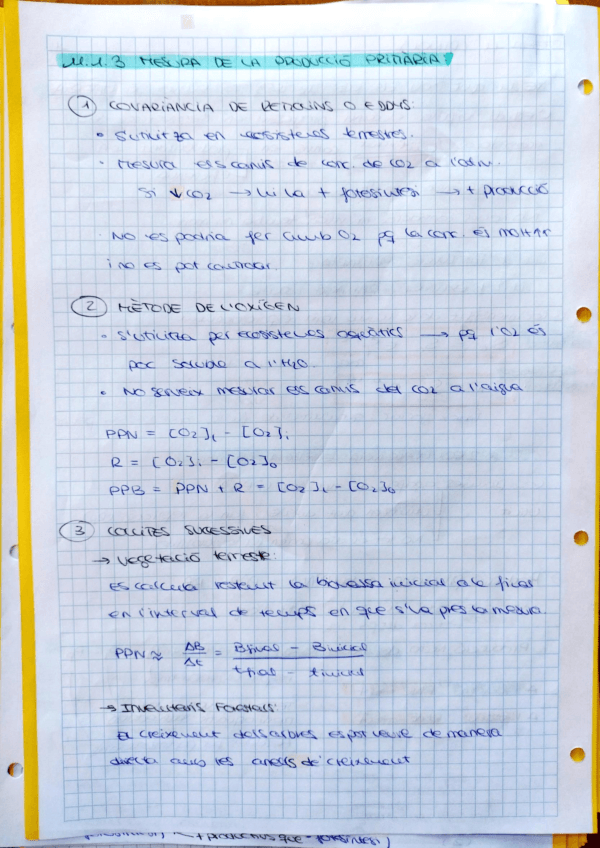 11.1.3 MESURA DE LA PRODUCCIÓ PRIMÀRIA:
1 COVARIÀNCIA DE REMOLINS O EDDYS:
• S'utilitza en ecosistemes terrestres.
• Mesura els canvis de conc. de CO2 a l'atm.
Si ↓ CO2 → hi ha + fotosíntesi → + producció
No es podria fer amb O2 pq la conc. és molt ↑↑
i no es pot
2 MÈTODE DE L'OXÍGEN
• S'utilitza per ecosistemes aquàtics → pq l'O2 és
poc soluble a l'H2O.
• No serveix mesurar els canvis del CO2 a l'aigua
PPN = [O2]t - [O2]i
R = [O2]i - [O2]o
PPB = PPN + R = [O2]t - [O2]o
3 COLLITES SUCESSIVES
→ Vegetació terrestre:
es calcula restant la biomassa inicial a la final
en l'interval de temps en que s'ha pres la mesura.
PPN ≈ ΔB/Δt = Bfinal - Binicial / tfinal - tinicial
→ Inventaris Forestals:
El creixement dels arbres es pot veure de manera
directa amb els anells de creixement
+ productius que - fotosíntesi)